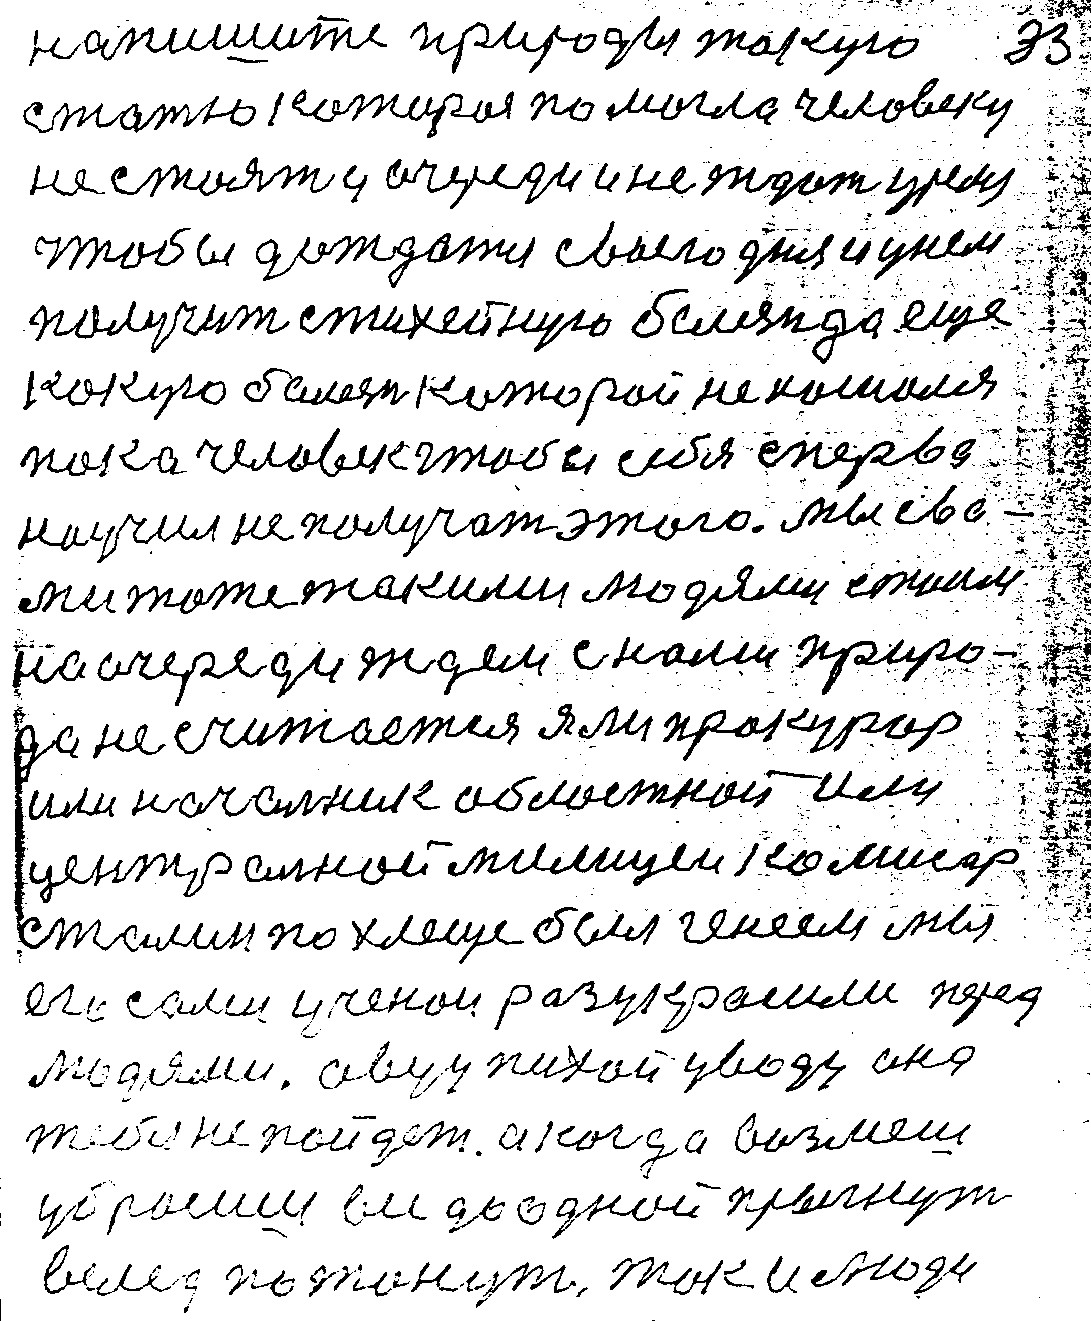 напишите природы такую 33
статю которая помогла человеку
не стоят у очереди и не ждат уремя
чтобы дождатя своего дня и унем
получит стихейную болезн да еще
кокую болезн которой не кошмаля
пока человек чтобы себя сперва
научил не получат этого. мы сва-
ми тоже такими людями стоим
на очереди ждем с нами приро-
да не считается я ли прокурор
или началник областной или
централной милицеи комисар
сталин похлеще был генеем мы
его сами ученои разукрасили перед
людями. овцу пихай уводу она
тебя не пойдет. а когда возмеш
убросиш вы доодной прыгнут
вслед потонут, так и люди